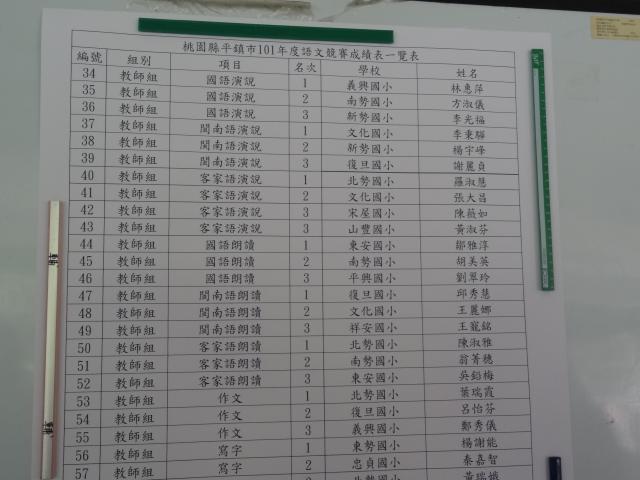 桃園縣平鎮市101年度語文競賽成績表一覽表
編號 組別 項目 名次 學校 姓名
34 教師組 國語演說 1 義興國小 林惠萍
35 教師組 國語演說 2 南勢國小 方淑儀
36 教師組 國語演說 3 新勢國小 李光福
37 教師組 閩南語演說 1 文化國小 李秉驊
38 教師組 閩南語演說 2 新勢國小 楊宇峰
39 教師組 閩南語演說 3 復旦國小 謝麗貞
40 教師組 客家語演說 1 北勢國小 羅淑慧
41 教師組 客家語演說 2 文化國小 張大昌
42 教師組 客家語演說 3 宋屋國小 陳薇如
43 教師組 客家語演說 3 山豐國小 黃淑芬
44 教師組 國語朗讀 1 東安國小 鄒雅淳
45 教師組 國語朗讀 2 南勢國小 胡美英
46 教師組 國語朗讀 3 平興國小 劉翠玲
47 教師組 閩南語朗讀 1 復旦國小 邱秀慧
48 教師組 閩南語朗讀 2 文化國小 王麗娜
49 教師組 閩南語朗讀 3 祥安國小 王寵銘
50 教師組 客家語朗讀 1 北勢國小 陳淑雅
51 教師組 客家語朗讀 2 南勢國小 翁菁穗
52 教師組 客家語朗讀 3 東安國小 吳鎔梅
53 教師組 作文 1 北勢國小 葉瑞霞
54 教師組 作文 2 復旦國小 呂怡芬
55 教師組 作文 3 義興國小 鄭秀儀
56 教師組 寫字 1 東勢國小 楊謝能
57 教師組 寫字 2 忠貞國小 秦嘉智